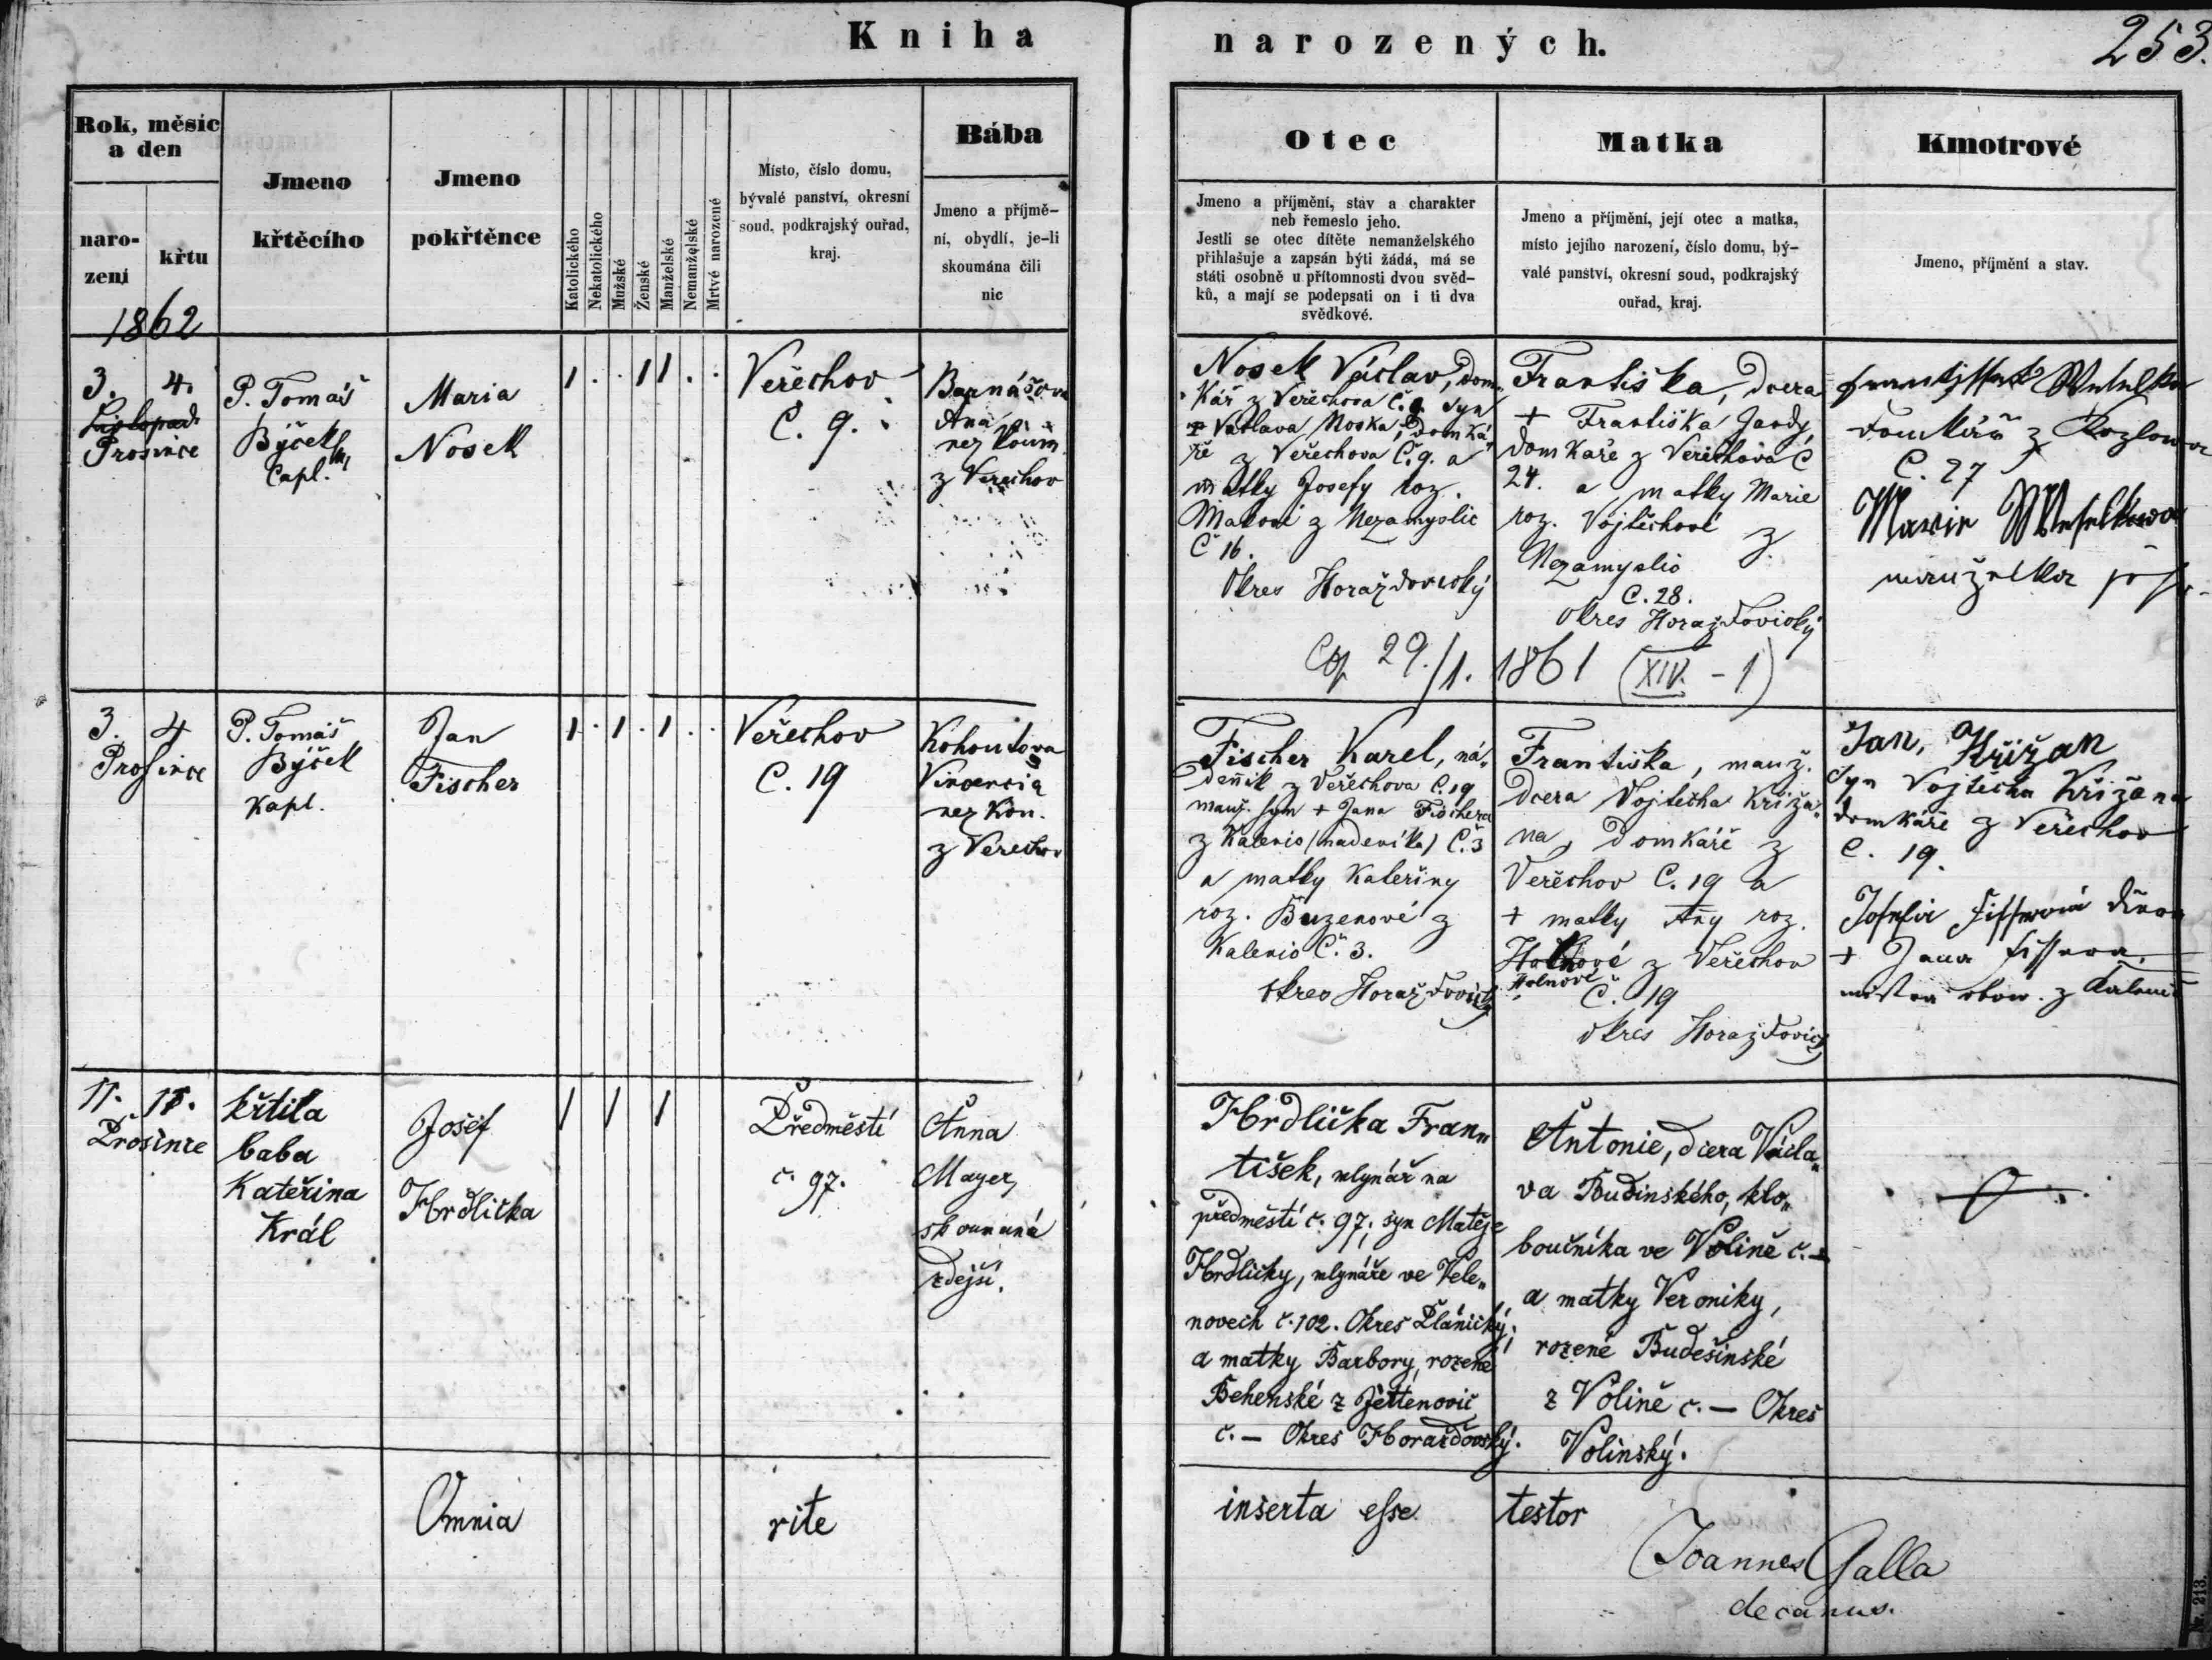 Kniha narozených.
253.
Rok, měsíc
a den
naro-
zení
křtu
1862
Jmeno
křtěcího
Jmeno
pokřtěnce
Katolického
Nekatolického
Mužské
Ženské
Manželské
Nemanželské
Mrtvé narozené
Místo, číslo domu,
bývalé panství, okresní
soud, podkrajský ouřad,
kraj.
Bába
Jmeno a příjmě-
ní, obydlí, je-li
skoumána čili
nic
Otec
Jmeno a příjmění, stav a charakter
neb řemeslo jeho.
Jestli se otec dítěte nemanželského
přihlašuje a zapsán býti žádá, má se
státi osobně u přítomnosti dvou svěd-
ků, a mají se podepsati on i ti dva
svědkové.
Matka
Jmeno a příjmění, její otec a matka,
místo jejího narození, číslo domu, bý-
valé panství, okresní soud, podkrajský
ouřad, kraj.
Kmotrové
Jmeno, příjmění a stav.
3. 4.
Listopad
Prosince
P. Tomáš
Býček
Capl.
Maria
Nosek
1 . . 1 1 . .
Veřechov
C. 9.
Barnášova
Ana
nez koum
z Verechov
Nosek Václav, dom„
kář z Veřechova č. 9. syn
Vaclava Noska, domká„
ře z Veřechova Č. 9. a
matky Josefy roz.
z Nezamyslic
Č 16.
Okres Horažďovický
Františka, dcera
+ Františka Jandy
domkaře z Verechova Č
24. a matky Marie
roz. Vojtěchové z
Nezamyslic
C. 28.
Okres Horažďovický
domkář z Kozlova
C. 27
Marie
manželka
Cop 29./1. 1861 (XIV. - 1)
3. 4
Prosince
P. Tomáš
Býček
Kapl.
Jan
Fischer
1 . 1 . 1 . .
Veřechov
C. 19
Kohoutova
Vincencia
nez kou.
z Verechov
Fischer Karel, ná„
deník z Veřechova C. 19
manž. syn + Jana Fischera
z Kalenic (nadeníka) Č. 3
a matky Kateřiny
roz. Buzenové z
Kalenic Č. 3.
okres Horažďovický
Františka, manž.
dcera Vojtěcha Križa„
na, domkáře z
Verěchov C. 19 a
+ matky Añy roz.
z Veřechov
Holnové
C. 19
okres Horažďovický
Jan, Křižan
syn Vojtěcha Križana
domkáře z Veřechov
C. 19.
+ Jana
z Kalenic
11. 11.
Prosince
křtila
baba
Kateřina
Král
Josef
Hrdlička
1 1 1
Předměstí
č. 97.
Anna
Mayer,
skoumaná
zdejší.
Hrdlička Fran„
tišek, mlynář na
předměstí č. 97; syn Matěje
Hrdličky, mlynáře ve Vele„
novech č. 102. Okres Plánický,
a matky Barbory, rozené
Behenské z Jettenovič
č. — Okres Horažďovský.
Antonie, dcera Václa„
va Budinského, klo„
boučníka ve Volině č. —
a matky Veroniky,
rozené Budešinské
z Volině č. — Okres
Volinský.
Omnia rite inserta esse testor
Joannes Galla
decanus.